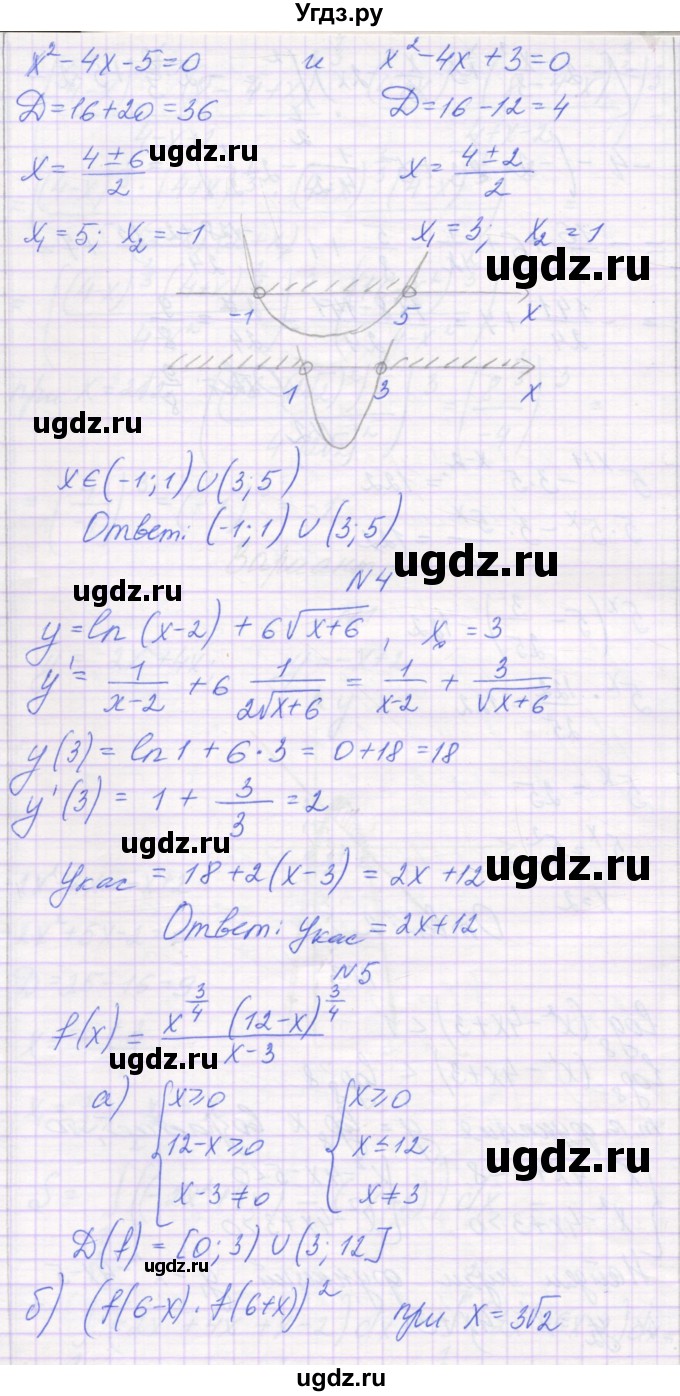 Угдз.ру
x²-4x-5=0 и x²-4x+3=0
D=16+20=36 D=16-12=4
ugdz.ru
x=(4±6)/2 x=(4±2)/2
x₁=5; x₂=-1 x₁=3; x₂=1
ugdz.ru
-1 5 x
1 3 x
ugdz.ru
x∈(-1;1)∪(3;5)
Ответ: (-1;1)∪(3;5)
ugdz.ru
N4
ugdz.ru
y=ln(x-2)+6√(x+6), x₀=3
y'=1/(x-2)+6 1/(2√(x+6))=1/(x-2)+3/√(x+6)
y(3)=ln1+6·3=0+18=18
y'(3)=1+3/3=2
ugdz.ru
yкас=18+2(x-3)=2x+12
ugdz.ru
Ответ: yкас=2x+12
N5
f(x)=(x^(3/4) (12-x)^(3/4))/(x-3)
ugdz.ru
а) {x≥0 {x≥0
12-x≥0 x≤12
ugdz.ru
x-3≠0 x≠3
D(f)=[0;3)∪(3;12]
ugdz.ru
б) (f(6-x)·f(6+x))² при x=3√2
ugdz.ru